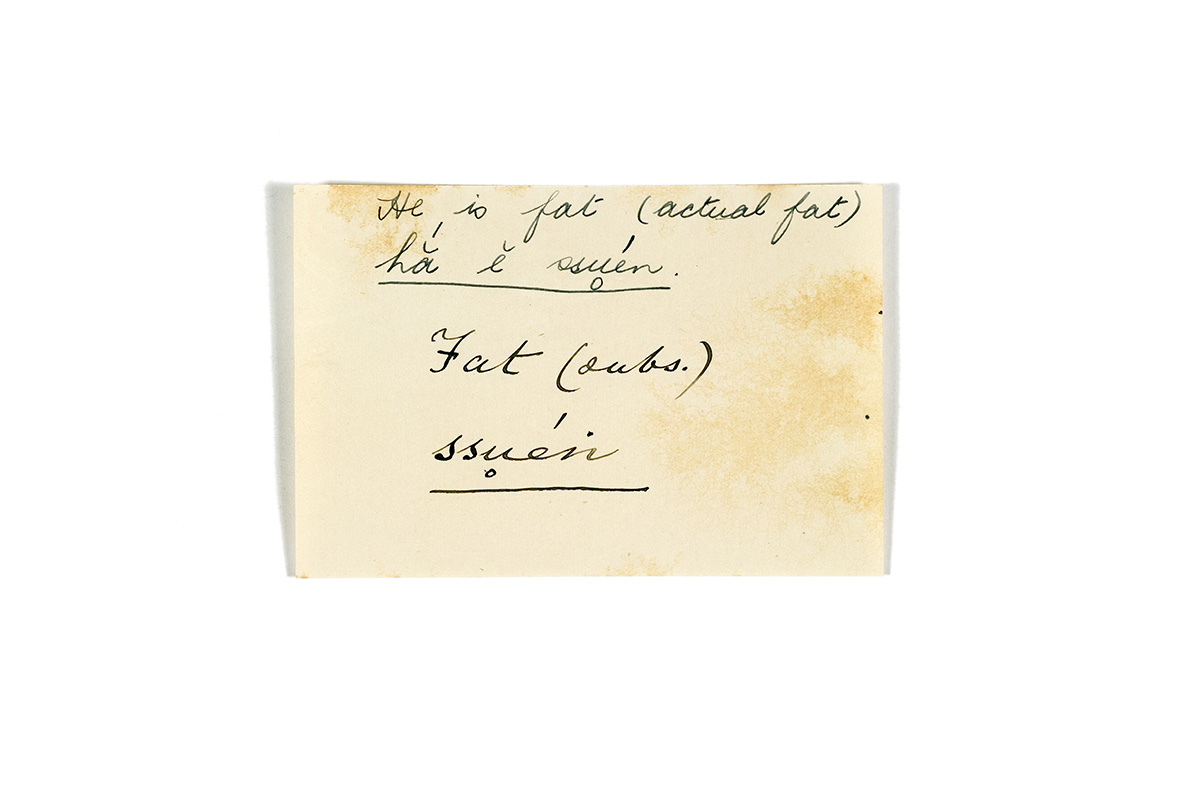 He is fat (actual fat)
hắ ĕ ssu̥én.
Fat (subs.)
ssu̥én